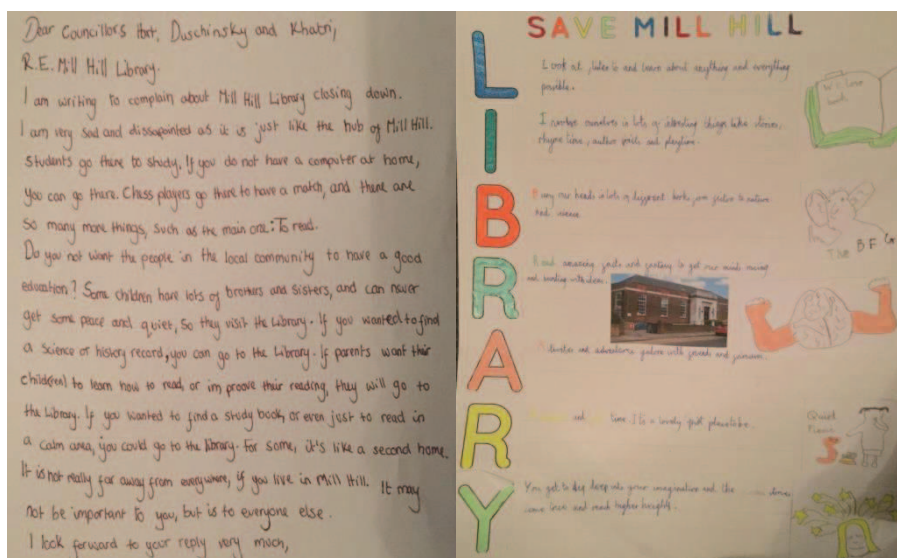 Dear Councillors Hart, Duschinsky and Khatri,
R.E. Mill Hill Library.
I am writing to complain about Mill Hill Library closing down.
I am very sad and dissapointed as it is just like the hub of Mill Hill.
Students go there to study. If you do not have a computer at home,
you can go there. Chess players go there to have a match, and there are
so many more things, such as the main one: To read.
Do you not want the people in the local community to have a good
education? Some children have lots of brothers and sisters, and can never
get some peace and quiet, so they visit the Library. If you wanted to find
a science or history record, you can go to the Library. If parents want their
child(ren) to learn how to read, or improove their reading, they will go to
the Library. If you wanted to find a study book, or even just to read in
a calm area, you could go to the library. For some, it's like a second home.
It is not really far away from everywhere, if you live in Mill Hill. It may
not be important to you, but is to everyone else.
I look forward to your reply very much,
SAVE MILL HILL
LIBRARY
Look at, listen to and learn about anything and everything
possible.
Immerse ourselves in lots of interesting things like stories,
rhyme time, author visits and playtime.
Bury our heads in lots of different books, from fiction to nature
and science.
Read amazing facts and fantasy to get our minds moving
and bursting with ideas.
Activities and adventures galore with friends and
and time. It's a lovely quiet place to be.
You get to dig deep into your imagination and
and reach higher heights.
We love
books
The BFG
Quiet
Please